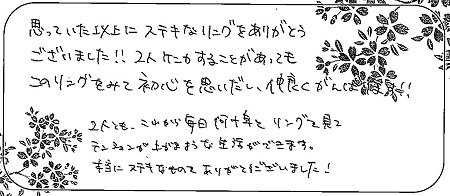 思っていた以上にステキなリングをありがとう
ございました!! 2人ケンカすることがあっても
このリングをみて初心を思いだし、仲良くがんばります!!
2人とも、これから毎日何十年とリングを見て
テンションが上がるような生活ができます。
本当にステキなものをありがとうございました!